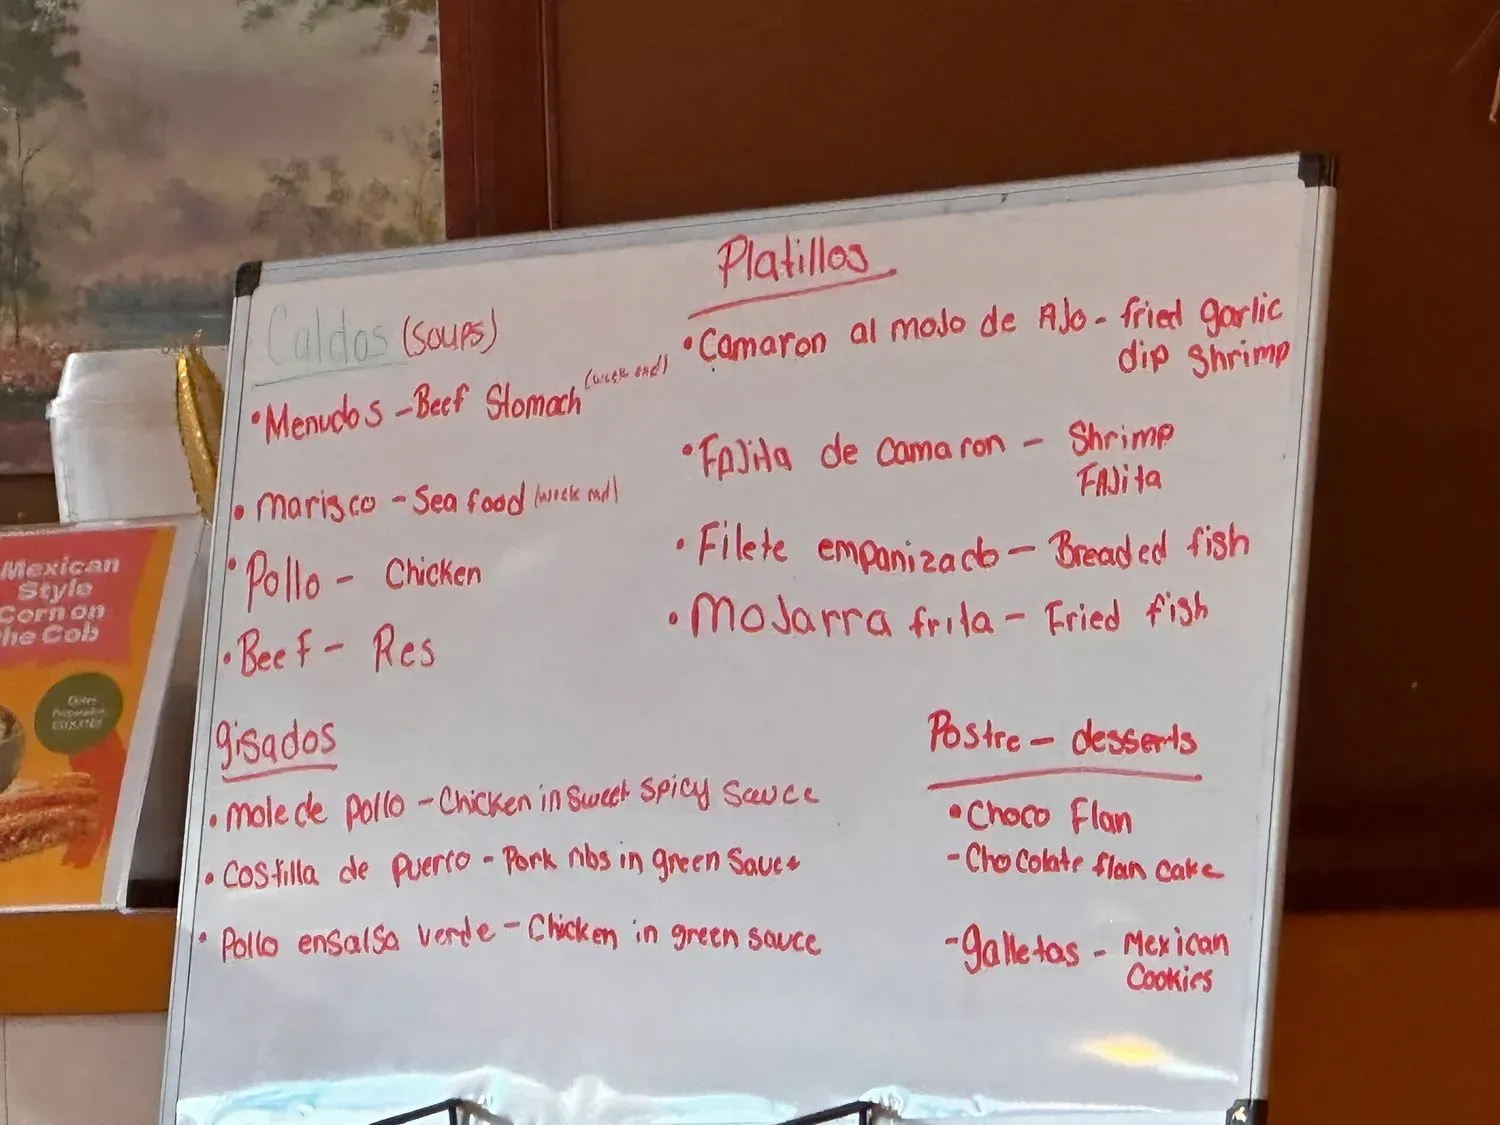 Platillos
Caldos (soups)
• Menudos - Beef Stomach (week end)
• Marisco - Sea food (week end)
• Pollo - Chicken
• Beef - Res
• Camaron al moJo de AJo - fried garlic
dip shrimp
• FAJita de camaron - Shrimp
FAJita
• Filete empanizado - Breaded fish
• MoJarra frita - Fried fish
gisados
• mole de pollo - Chicken in sweet spicy sauce
• Costilla de puerco - Pork ribs in green sauce
• Pollo ensalsa verde - Chicken in green sauce
Postre - desserts
• Choco Flan
- Chocolate flan cake
- galletas - Mexican
Cookies
Mexican
Style
Corn on
he Cob